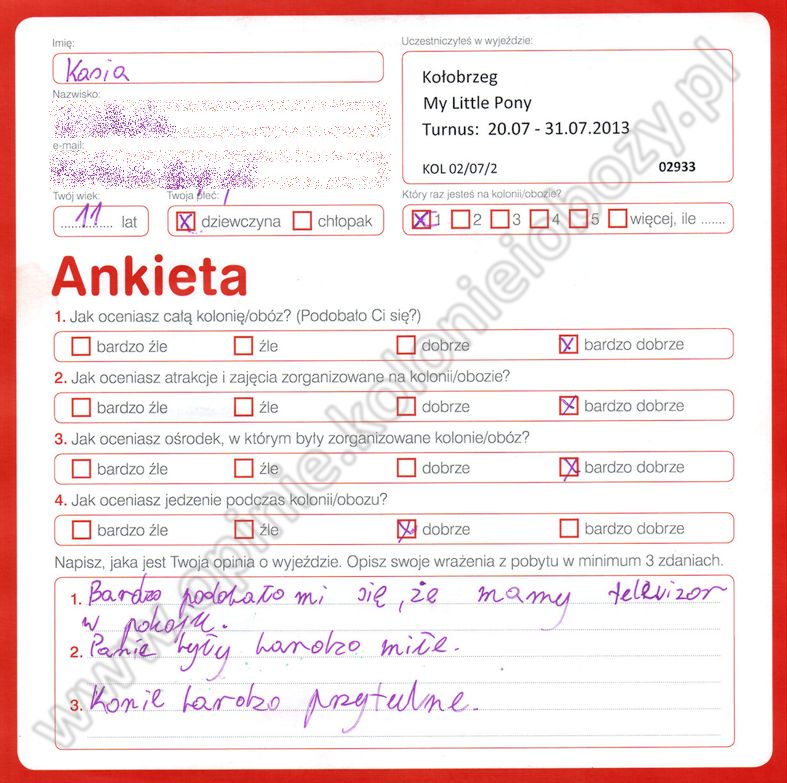 Imię:
Kasia
Nazwisko:
e-mail:
Twój wiek:
11 lat
Twoja płeć:
dziewczyna chłopak
Uczestniczyłeś w wyjeździe:
Kołobrzeg
My Little Pony
Turnus: 20.07 - 31.07.2013
KOL 02/07/2 02933
Który raz jesteś na kolonii/obozie?
1 2 3 4 5 więcej, ile .......
Ankieta
1. Jak oceniasz całą kolonię/obóz? (Podobało Ci się?)
bardzo źle źle dobrze bardzo dobrze
2. Jak oceniasz atrakcje i zajęcia zorganizowane na kolonii/obozie?
bardzo źle źle dobrze bardzo dobrze
3. Jak oceniasz ośrodek, w którym były zorganizowane kolonie/obóz?
bardzo źle źle dobrze bardzo dobrze
4. Jak oceniasz jedzenie podczas kolonii/obozu?
bardzo źle źle dobrze bardzo dobrze
Napisz, jaka jest Twoja opinia o wyjeździe. Opisz swoje wrażenia z pobytu w minimum 3 zdaniach.
1. Bardzo podobało mi się, że mamy telewizor
w pokoju.
2. Panie były bardzo miłe.
3. Konie bardzo przytulne.
www.opinie.kolonieiobozy.pl